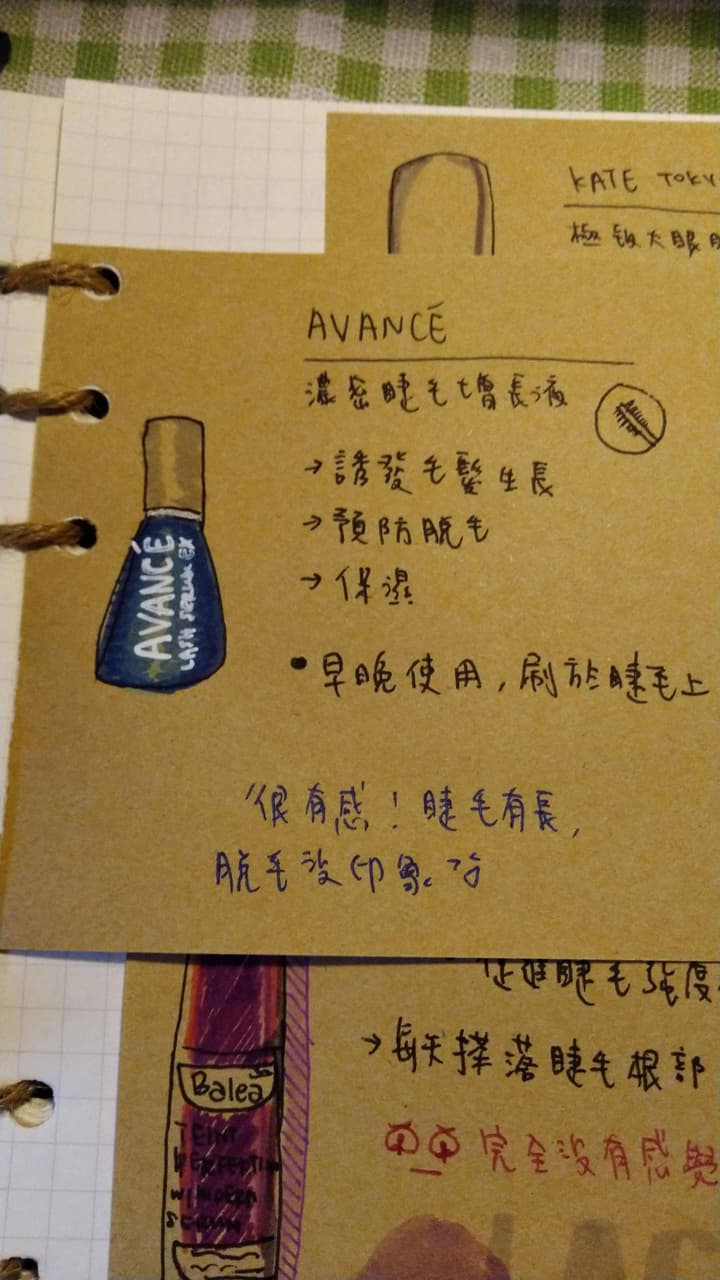 KATE TOKY
極致大眼
AVANCÉ
濃密睫毛增長液
→誘發毛髮生長
→預防脫毛
→保濕
•早晚使用，刷於睫毛上
AVANCÉ
LASH SERUM EX
很有感！睫毛有長，
脫毛沒印象。
促進睫毛強度
→每天擦落睫毛根部
完全沒有感覺
Balea
TEINT
PERFECTION
WIMPERN
SERUM